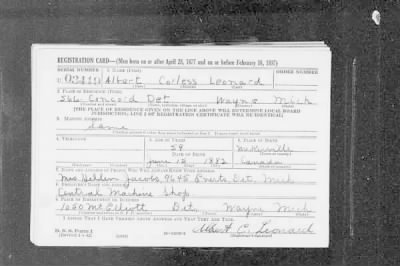 REGISTRATION CARD—(Men born on or after April 28, 1877 and on or before February 16, 1897)
SERIAL NUMBER 1. NAME (Print) ORDER NUMBER
U Albert Corless Leonard
(First) (Middle) (Last)
2. PLACE OF RESIDENCE (Print)
566 Concord Det Wayne Mich
(Number and street) (Town, township, village, or city) (County) (State)
[THE PLACE OF RESIDENCE GIVEN ON THE LINE ABOVE WILL DETERMINE LOCAL BOARD
JURISDICTION; LINE 2 OF REGISTRATION CERTIFICATE WILL BE IDENTICAL]
3. MAILING ADDRESS
Same
4. TELEPHONE 5. AGE IN YEARS 6. PLACE OF BIRTH
59
DATE OF BIRTH
June 15 1882 Canada
7. NAME AND ADDRESS OF PERSON WHO WILL ALWAYS KNOW YOUR ADDRESS
Mrs. Helen Jacobs, 9645 Det. Mich
8. EMPLOYER'S NAME AND ADDRESS
Central Machine Shop
9. PLACE OF EMPLOYMENT OR BUSINESS
1050 Det. Wayne Mich
I AFFIRM THAT I HAVE VERIFIED ABOVE ANSWERS AND THAT THEY ARE TRUE.
D. S. S. Form 1
Albert C. Leonard